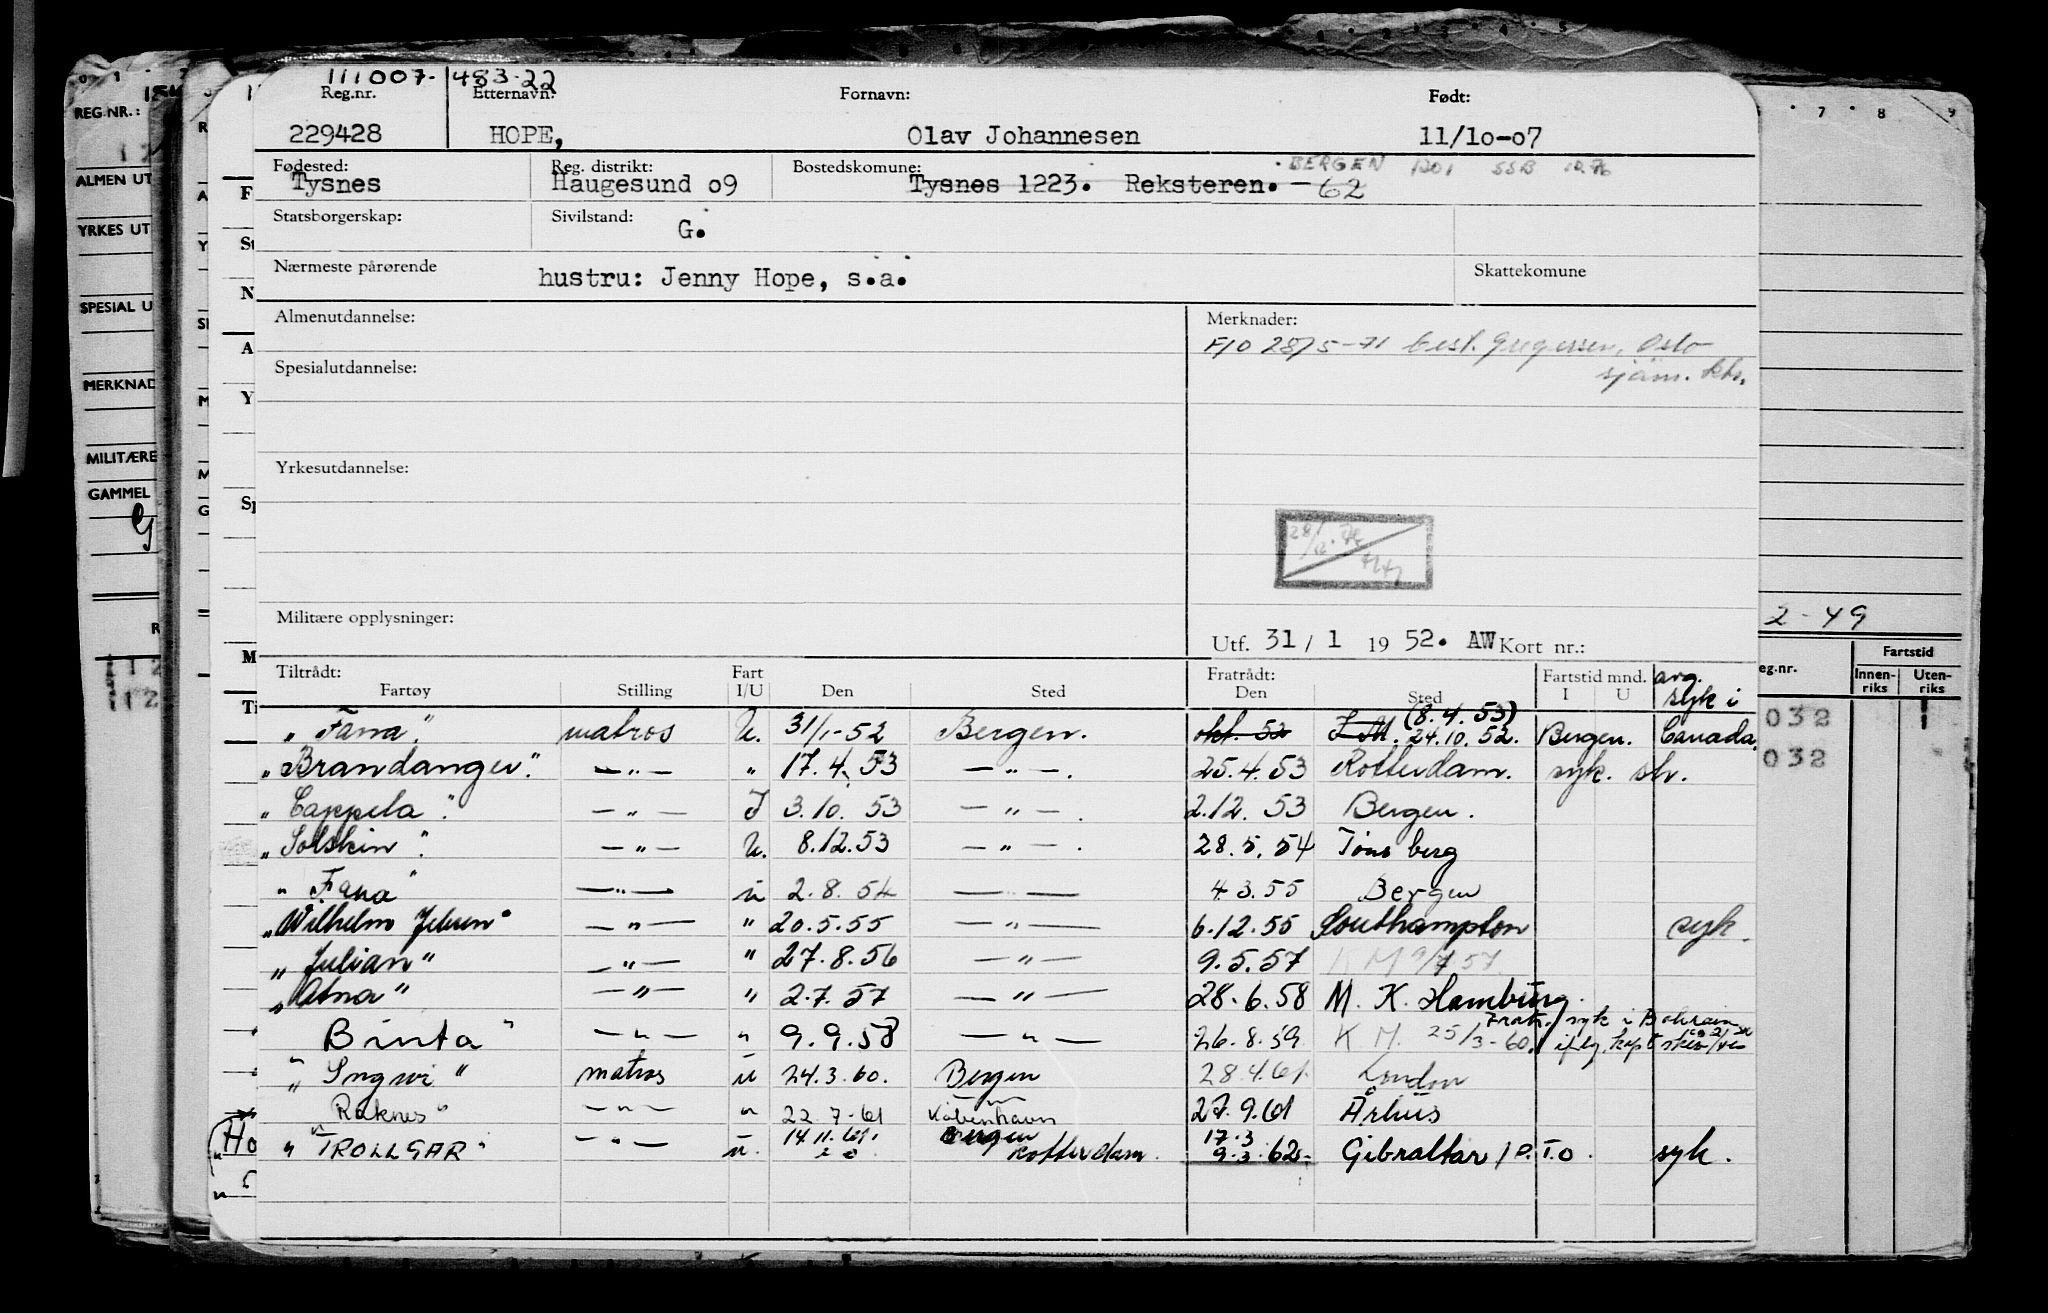 111007- 483-22
Reg.nr. Etternavn: Fornavn: Født:
229428 HOPE, Olav Johannesen 11/10-07
Fødested: Reg. distrikt: Bostedskomune: BERGEN 1301 SSB 10.76
Tysnes Haugesund 09 Tysnes 1223. Reksteren. - 62
Statsborgerskap: Sivilstand:
G.
Nærmeste pårørende Skattekomune
hustru: Jenny Hope, s.a.
Almenutdannelse: Merknader:
F/O 28/5-71 best. Gregersen, Oslo
Spesialutdannelse: sjøm. ktr.
Yrkesutdannelse:
Militære opplysninger:
Utf. 31/ 1 19 52. AW Kort nr.:
Tiltrådt: Fart Fratrådt: Fartstid mnd. avg.
Fartøy Stilling I/U Den Sted Den Sted I U syk i
"Fana". matros U. 31/1-52 Bergen. okt. 52 (8.4.53) 24.10.52. Bergen. Canada.
"Brandanger". —"— " 17.4.53 —"—. 25.4.53 Rotterdam. syk.
"Cappela". —"— I 3.10.53 —"—. 2.12.53 Bergen.
"Solskin". —"— U. 8.12.53 —"—. 28.5.54 Tønsberg
"Fana" —"— u 2.8.54 —"— 4.3.55 Bergen
"Wilhelm Jebsen" —"— " 20.5.55 —"— 6.12.55 Southampton syk.
"Julian" —"— " 27.8.56 —"— 9.5.57 K M 9/7 57
"Atna" —"— " 2.7.57 —"— 28.6.58 M. K. Hamburg.
Fratr. syk i Bahrain
Binta" —"— " 9.9.58 —"— 26.8.59 K. M. 25/3-60. iflg. kapt
"Ingwi" matros u 24.3.60. Bergen 28.4.61. London
Raknes" —"— " 22.7-61 København 27.9.61 Århus
"TROLLGAR" —"— u. 14.11.61. Bergen Rotterdam. 17.3 9.3.62. Gibraltar / P.T.O. syk.
REG.NR.:
ALMEN UT
YRKES UT
SPESIAL U
MERKNAD
MILITÆRE
GAMMEL
2-49
eg.nr. Fartstid
Innen-riks Uten-riks
032
032